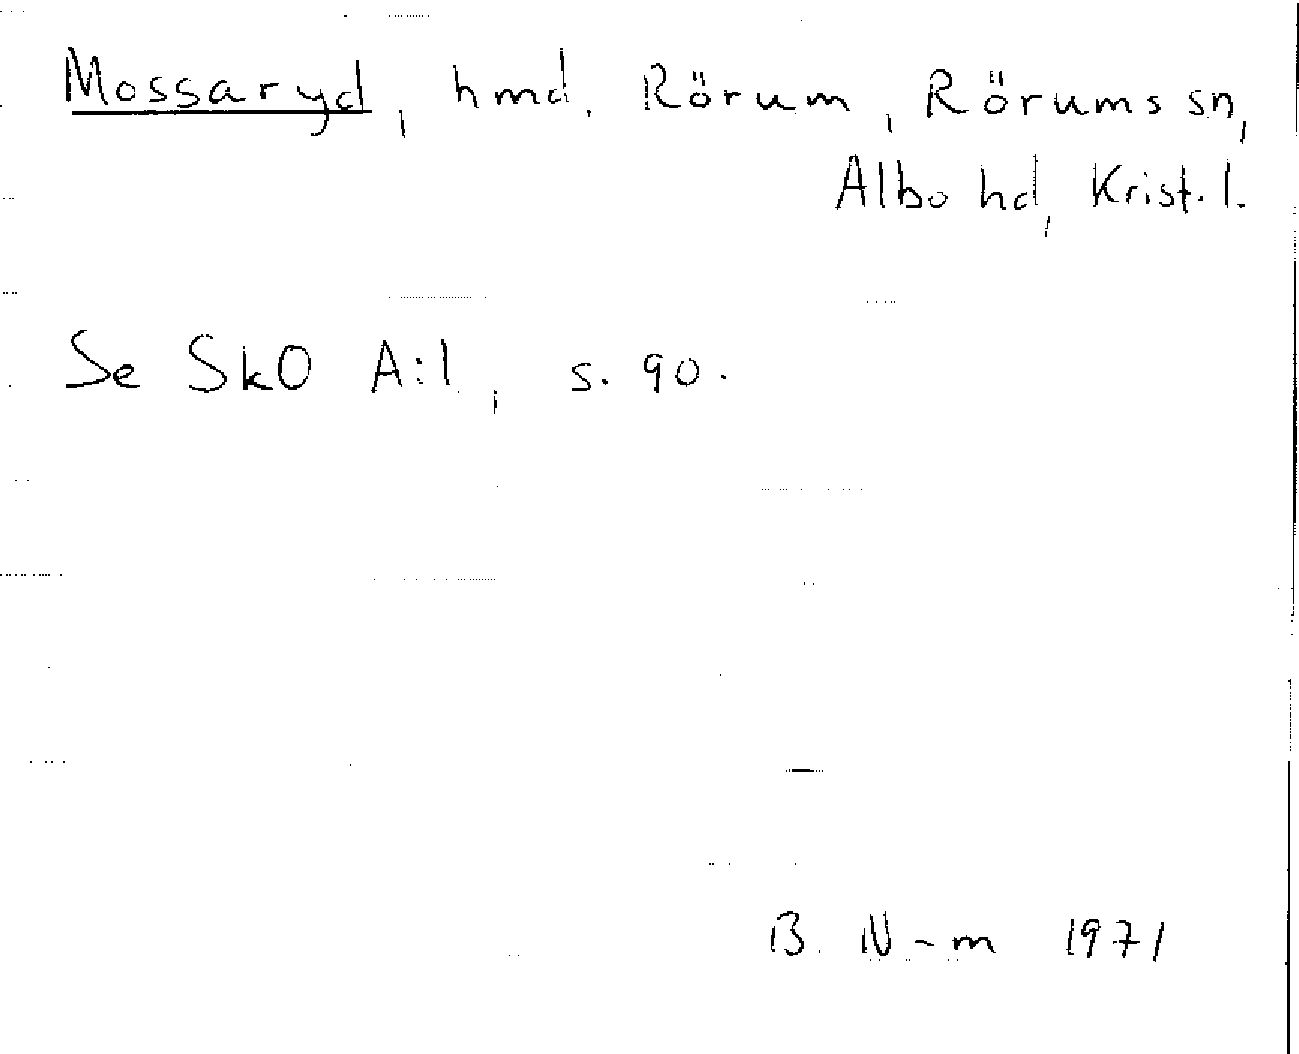 Mossaryd, hmd. Rörum, Rörums sn,
Albo hd, Krist. l.
Se SkO A:1, s. 90.
B. N-m 1971